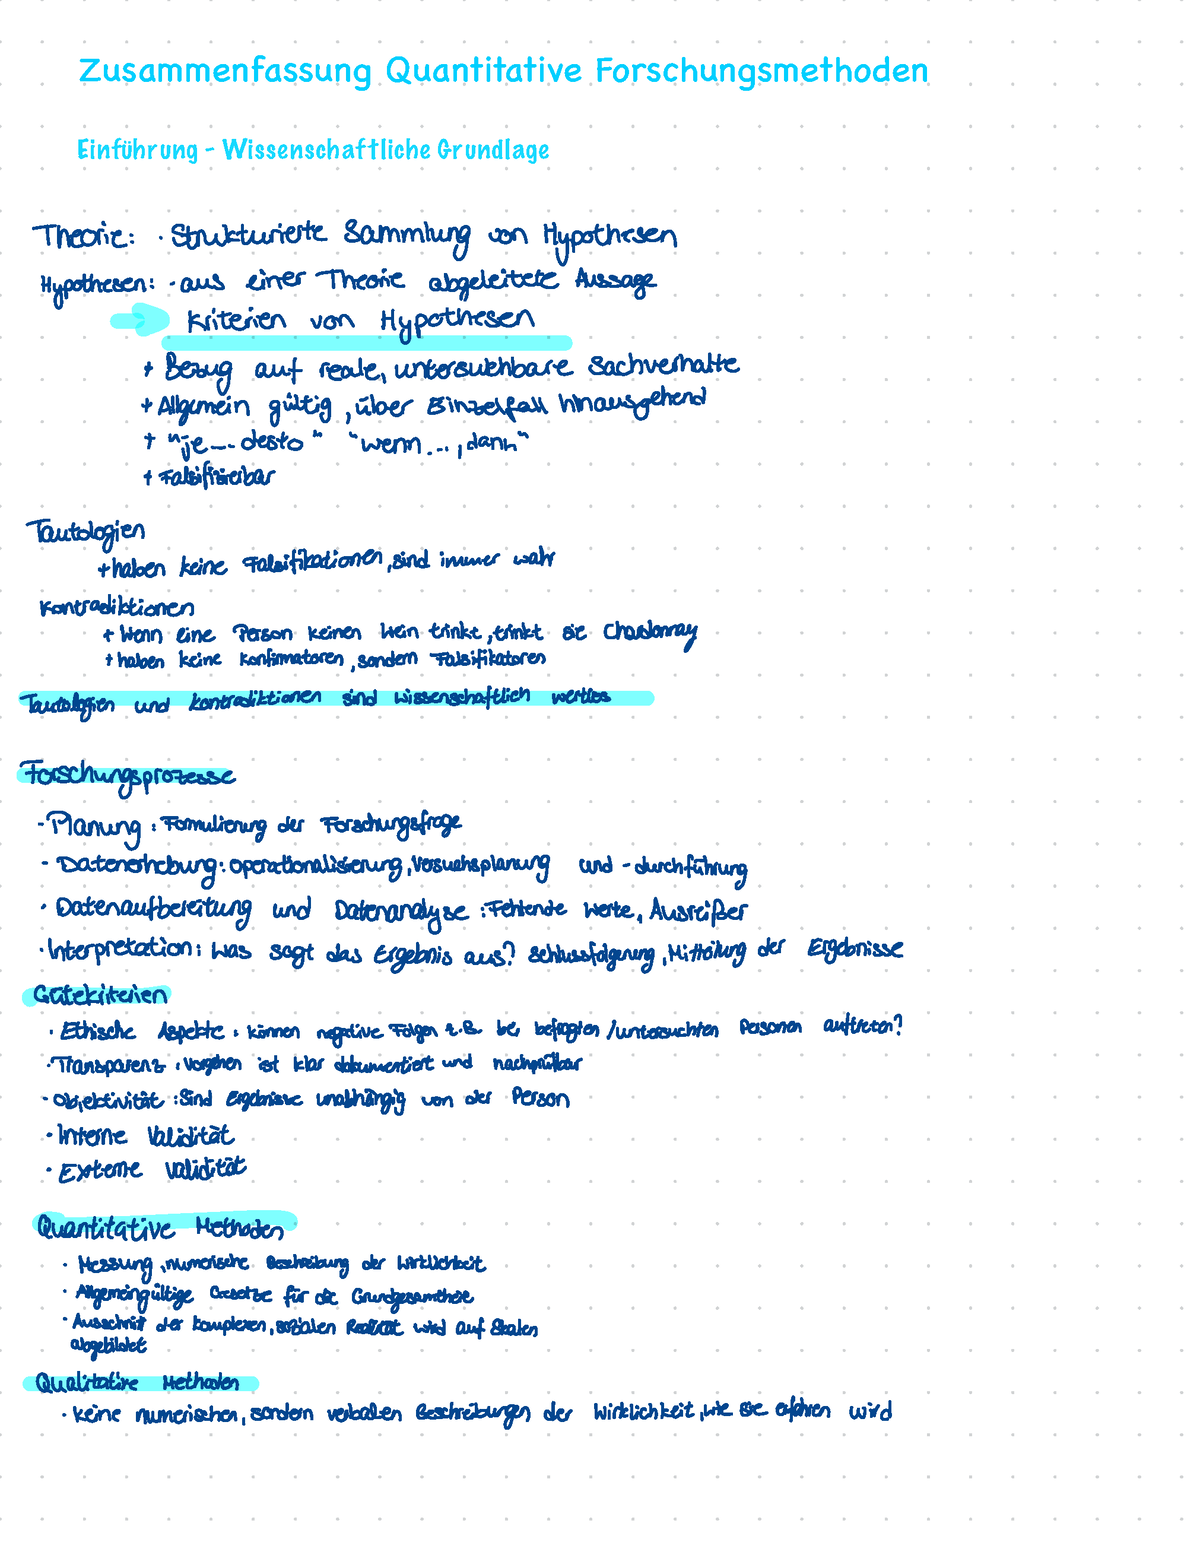 Zusammenfassung Quantitative Forschungsmethoden
Einführung - Wissenschaftliche Grundlage
Theorie: · Strukturierte Sammlung von Hypothesen
Hypothesen: · aus einer Theorie abgeleitete Aussage
Kriterien von Hypothesen
+ Bezug auf reale, untersuchbare Sachverhalte
+ Allgemein gültig, über Einzelfall hinausgehend
+ "je ... desto" "wenn ..., dann"
+ Falsifizierbar
Tautologien
+ haben keine Falsifikationen, sind immer wahr
Kontradiktionen
+ Wenn eine Person keinen Wein trinkt, trinkt sie Chardonnay
+ haben keine Konfirmatoren, sondern Falsifikatoren
Tautologien und Kontradiktionen sind wissenschaftlich wertlos
Forschungsprozesse
- Planung: Formulierung der Forschungsfrage
- Datenerhebung: Operationalisierung, Versuchsplanung und -durchführung
· Datenaufbereitung und Datenanalyse: Fehlende Werte, Ausreißer
· Interpretation: Was sagt das Ergebnis aus? Schlussfolgerung, Mitteilung der Ergebnisse
Gütekriterien
· Ethische Aspekte: können negative Folgen z.B. bei befragten/untersuchten Personen auftreten?
· Transparenz: Vorgehen ist klar dokumentiert und nachprüfbar
· Objektivität: Sind Ergebnisse unabhängig von der Person
· Interne Validität
· Externe Validität
Quantitative Methoden
· Messung, numerische Beschreibung der Wirklichkeit
· Allgemeingültige Gesetze für die Grundgesamtheit
· Ausschnitt der komplexen, sozialen Realität wird auf Skalen
abgebildet
Qualitative Methoden
· Keine numerischen, sondern verbalen Beschreibungen der Wirklichkeit, wie sie erfahren wird